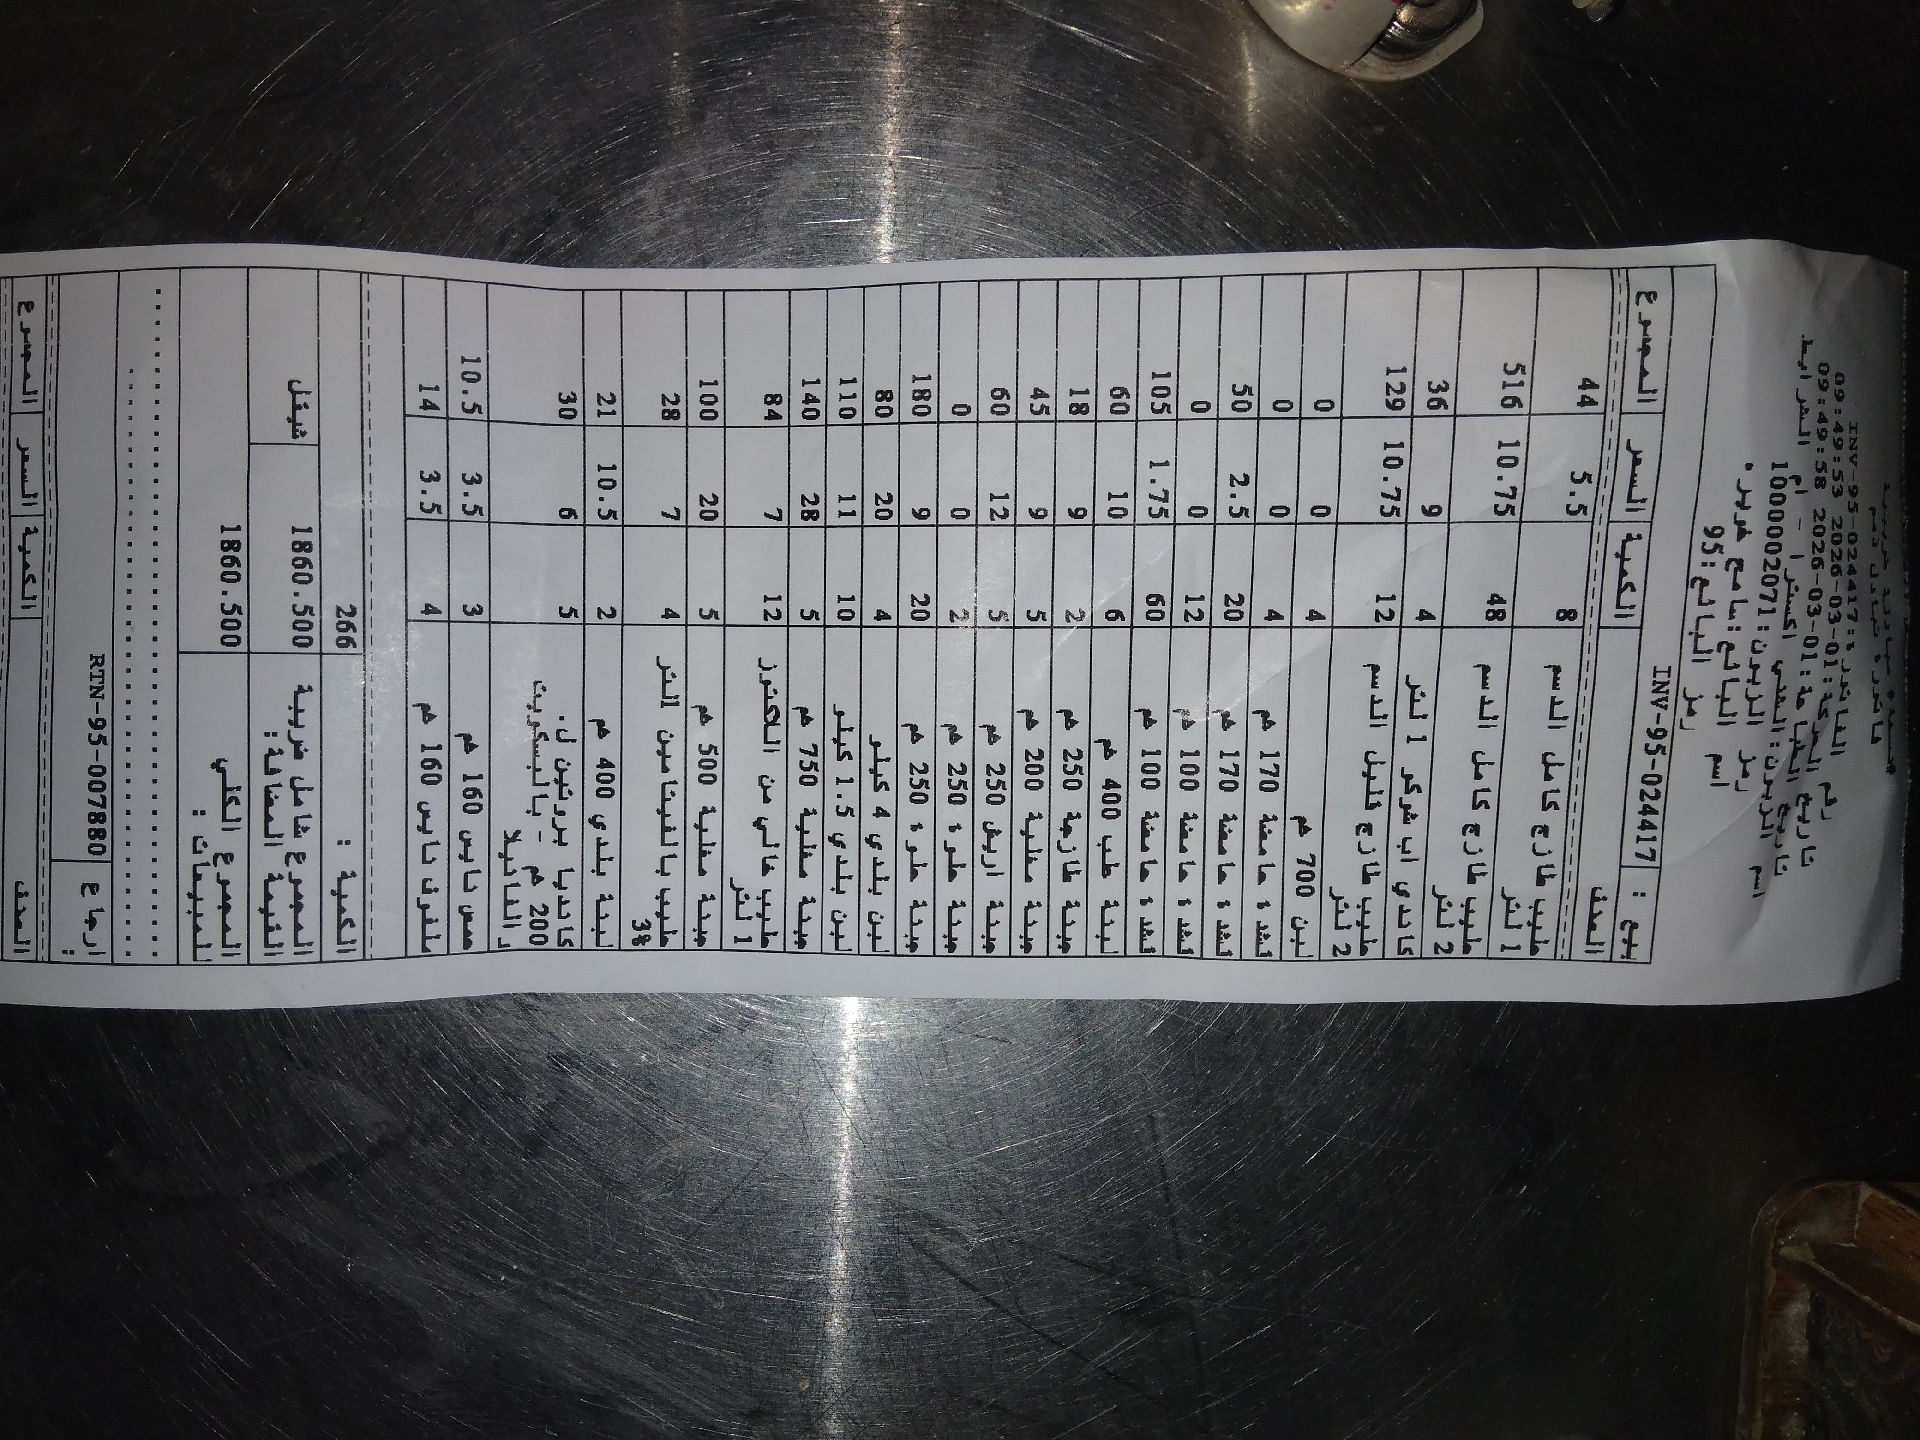 INV-95-024417: رقم الفاتورة
تاريخ الحركة: 01-03-2026 09:49:53
تاريخ الطباعة: 01-03-2026 09:49:58
اسم الزبون: الشني اكسترا - ام الشرايط
رمز الزبون: 1000002071
اسم البائع: سامح
رمز البائع: 95
بيع : INV-95-024417
الصنف الكمية السعر المجموع
حليب طازج كامل الدسم 8 5.5 44
1 لتر
حليب طازج كامل الدسم 48 10.75 516
2 لتر
كاندي اب شوكو 1 لتر 4 9 36
حليب طازج قليل الدسم 12 10.75 129
2 لتر
لبن 700 غم 4 0 0
قشدة حامضة 170 غم 4 0 0
قشدة حامضة 170 غم 20 2.5 50
قشدة حامضة 100 غم 12 0 0
قشدة حامضة 100 غم 60 1.75 105
لبنة علب 400 غم 6 10 60
جبنة طازجة 250 غم 2 9 18
جبنة مغلية 200 غم 5 9 45
جبنة اريش 250 غم 5 12 60
جبنة حلوة 250 غم 2 0 0
جبنة حلوة 250 غم 20 9 180
لبن بلدي 4 كيلو 4 20 80
لبن بلدي 1.5 كيلو 10 11 110
جبنة مغلية 750 غم 5 28 140
حليب خالي من اللكتوز 12 7 84
1 لتر
جبنة مغلية 500 غم 5 20 100
حليب بالفيتامين التر 4 7 28
3%
لبنة بلدي 400 غم 2 10.5 21
كانديا بروتين ل. 5 6 30
200 غم - بالبسكويت
والفانيلا
حمص نايس 160 غم 3 3.5 10.5
ملفوف نايس 160 غم 4 3.5 14
الكمية : 266
المجموع شامل ضريبة القيمة المضافة: 1860.500 شيقل
المجموع الكلي للمبيعات : 1860.500
ارجاع : RTN-95-007880
الصنف الكمية السعر المجموع